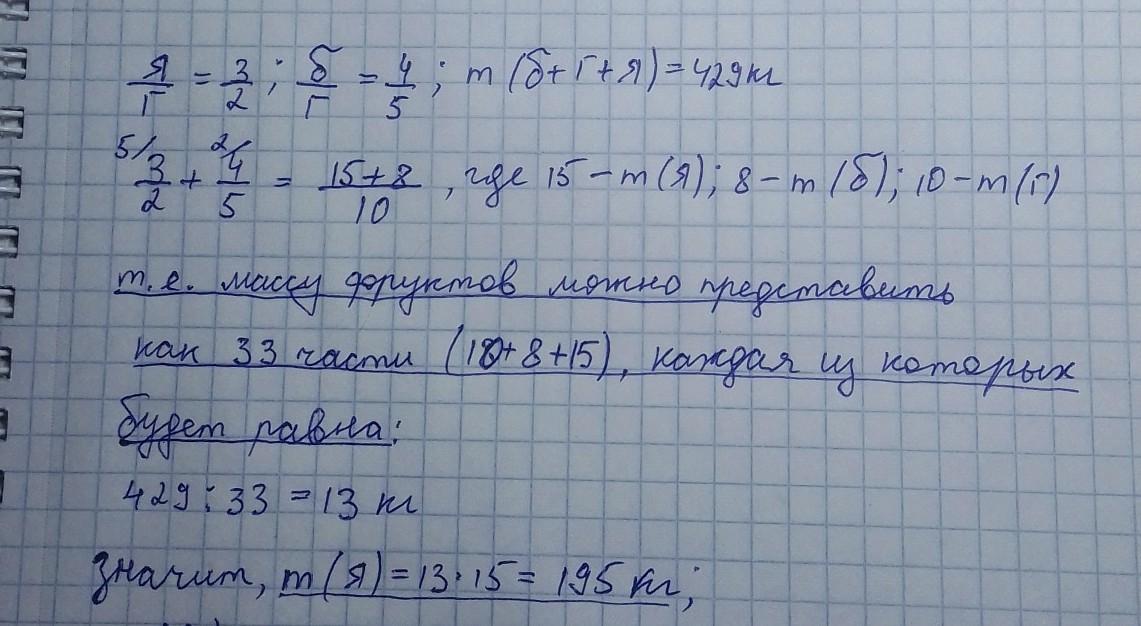 Я/Г = 3/2 ; б/Г = 4/5 ; m (б+Г+Я) = 429 кг
5/ 3/2 + 2/ 4/5 = 15+8/10 , где 15 – m (Я) ; 8 – m (б) ; 10 – m (Г)
т.е. массу форуктов можно представить
как 33 части (10+8+15), каждая из которых
будет равна:
429 : 33 = 13 кг
значит, m (Я) = 13 · 15 = 195 кг;